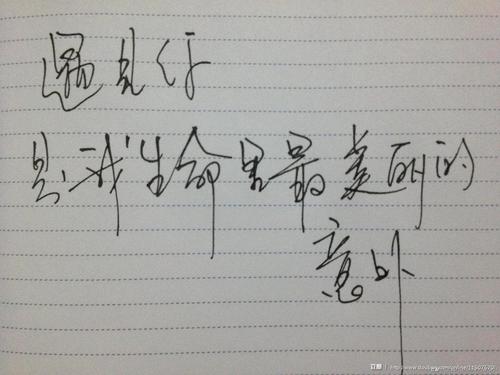 遇见你
是我生命里最美丽的
意外
豆瓣 http://www.douban.com/online/11507620/